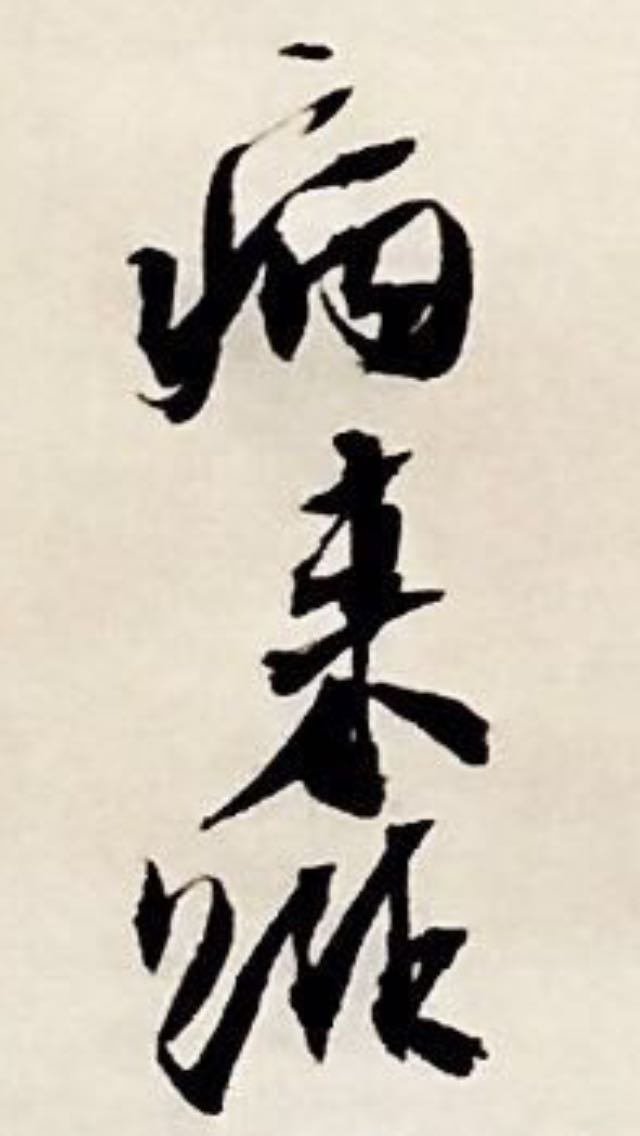 病来唯